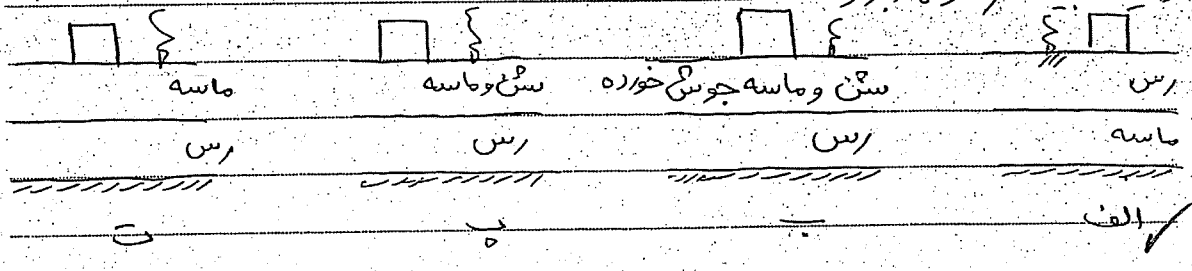 رس سثن وماسه جوش خورده سثن وماسه ماسه
ماسه رس رس رس
الف ب پ ت